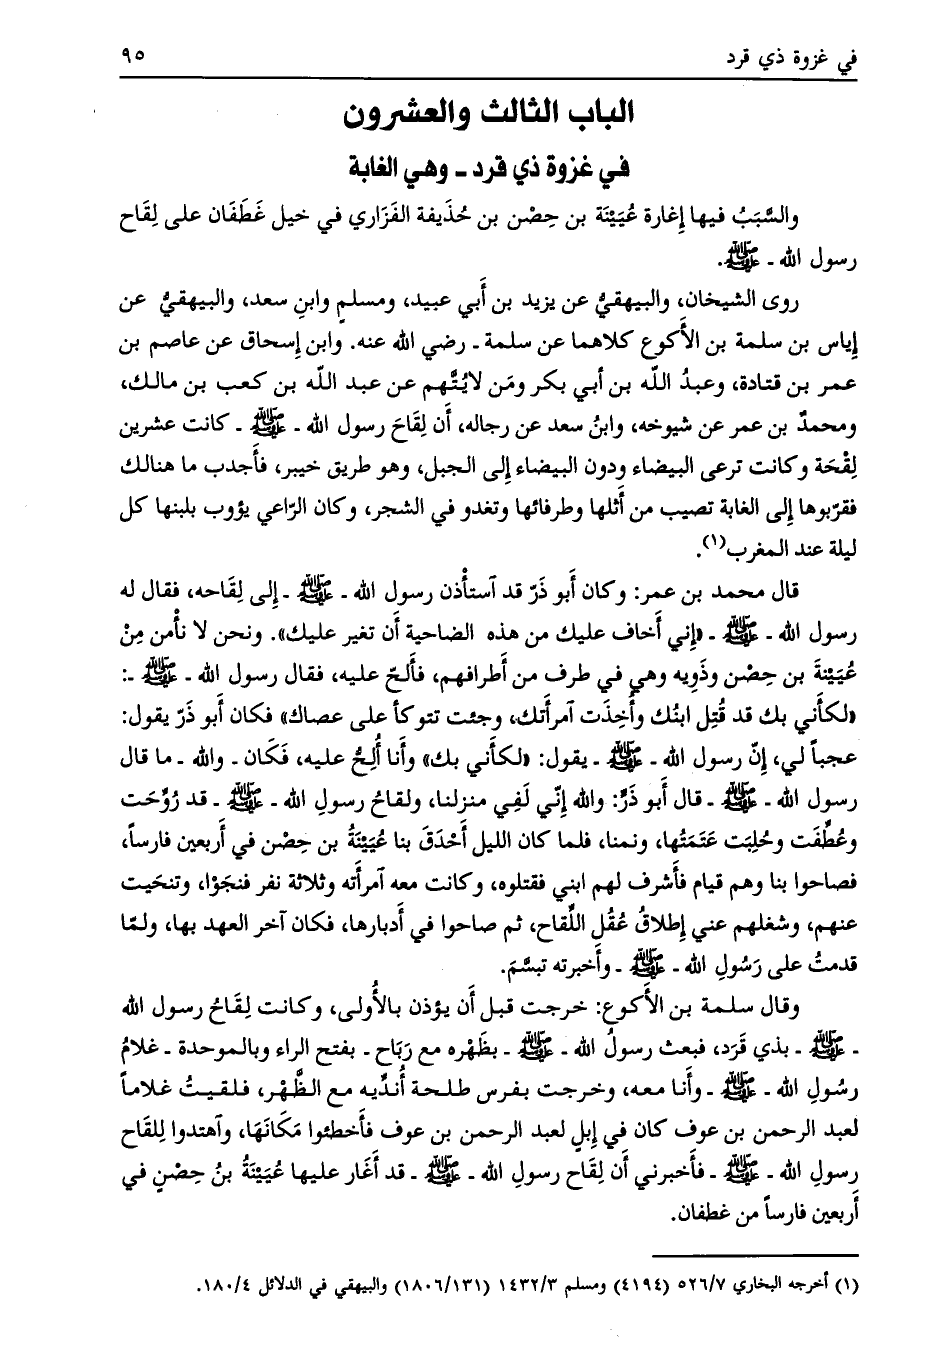 في غزوة ذي قرد
٩٥
الباب الثالث والعشرون
في غزوة ذي قرد ـ وهي الغابة
والسَّبَبُ فيها إغارة عُيَيْنَة بن حِصْن بن حُذَيفة الفَزَاري في خيل غَطَفَان على لِقَاح
رسول الله ـ ﷺ.
روى الشيخان، والبيهقيُّ عن يزيد بن أَبي عبيد، ومسلمٍ وابنِ سعد، والبيهقيُّ عن
إِياس بن سلمة بن الأَكوع كلاهما عن سلمة ـ رضي الله عنه. وابن إسحاق عن عاصم بن
عمر بن قتادة، وعبدُ اللَّه بن أبي بكر ومَن لايُتَّهم عن عبد اللَّه بن كعب بن مالك،
ومحمدٌ بن عمر عن شيوخه، وابنُ سعد عن رجاله، أَن لِقَاحَ رسول الله ـ ﷺ ـ كانت عشرين
لِقْحَة وكانت ترعى البيضاء ودون البيضاء إِلى الجبل، وهو طريق خيبر، فأَجدب ما هنالك
فقرّبوها إِلى الغابة تصيب من أَثلها وطرفائها وتغدو في الشجر، وكان الرّاعي يؤوب بلبنها كل
ليلة عند المغرب(١).
قال محمد بن عمر: وكان أَبو ذَرّ قد آستأْذن رسول الله ـ ﷺ ـ إِلى لِقَاحه، فقال له
رسول الله ـ ﷺ ـ «إِني أَخاف عليك من هذه الضاحية أَن تغير عليك». ونحن لا نأْمن مِنْ
عُيَيْنَةَ بن حِصْن وذَوِيه وهي في طرف من أَطرافهم، فأَلحّ عليه، فقال رسول الله ـ ﷺ ـ:
«لكأَني بك قد قُتِل ابنُك وأُخِذَت آمرأَتك، وجئت تتوكأ على عصاك» فكان أَبو ذَرّ يقول:
عجباً لي، إِنّ رسول الله ـ ﷺ ـ يقول: «لكأَني بك» وأَنا أُلِحُّ عليه، فَكَان ـ والله ـ ما قال
رسول الله ـ ﷺ ـ قال أَبو ذَرٍّ: والله إِنّي لَفِي منزلنا، ولقاحُ رسولِ الله ـ ﷺ ـ قد رُوِّحَت
وعُطِّفَت وحُلِبَت عَتَمَتُها، ونمنا، فلما كان الليل أَحْدَقَ بنا عُيَيْنَةُ بن حِصْن في أَربعين فارساً،
فصاحوا بنا وهم قيام فأَشرف لهم ابني فقتلوه، وكانت معه آمرأَته وثلاثة نفر فنجَوْا، وتنحيت
عنهم، وشغلهم عني إِطلاقُ عُقُل اللِّقاح، ثم صاحوا في أَدبارها، فكان آخر العهد بها، ولمّا
قدمتُ على رَسُولِ الله ـ ﷺ ـ وأَخبرته تبسَّمَ.
وقال سلمة بن الأَكوع: خرجت قبل أَن يؤذن بالأُولى، وكانت لِقَاحُ رسول الله
ـ ﷺ ـ بذي قَرَد، فبعث رسولُ الله ـ ﷺ ـ بظَهْره مع رَبَاح ـ بفتح الراء وبالموحدة ـ غلامُ
رسُولِ الله ـ ﷺ ـ وأَنا معه، وخرجت بفرس طلحة أُندِّيه مع الظَّهْر، فلقيتُ غلاماً
لعبد الرحمن بن عوف كان في إِبلٍ لعبد الرحمن بن عوف فأَخطئوا مَكَانَهَا، وآهتدوا لِلقَاح
رسولِ الله ـ ﷺ ـ فأَخبرني أَن لِقَاح رسولِ الله ـ ﷺ ـ قد أَغار عليها عُيَيْنَةُ بنُ حِصْنٍ في
أَربعين فارساً من غطفان.
(١) أخرجه البخاري ٥٢٦/٧ (٤١٩٤) ومسلم ١٤٣٢/٣ (١٨٠٦/١٣١) والبيهقي في الدلائل ١٨٠/٤.